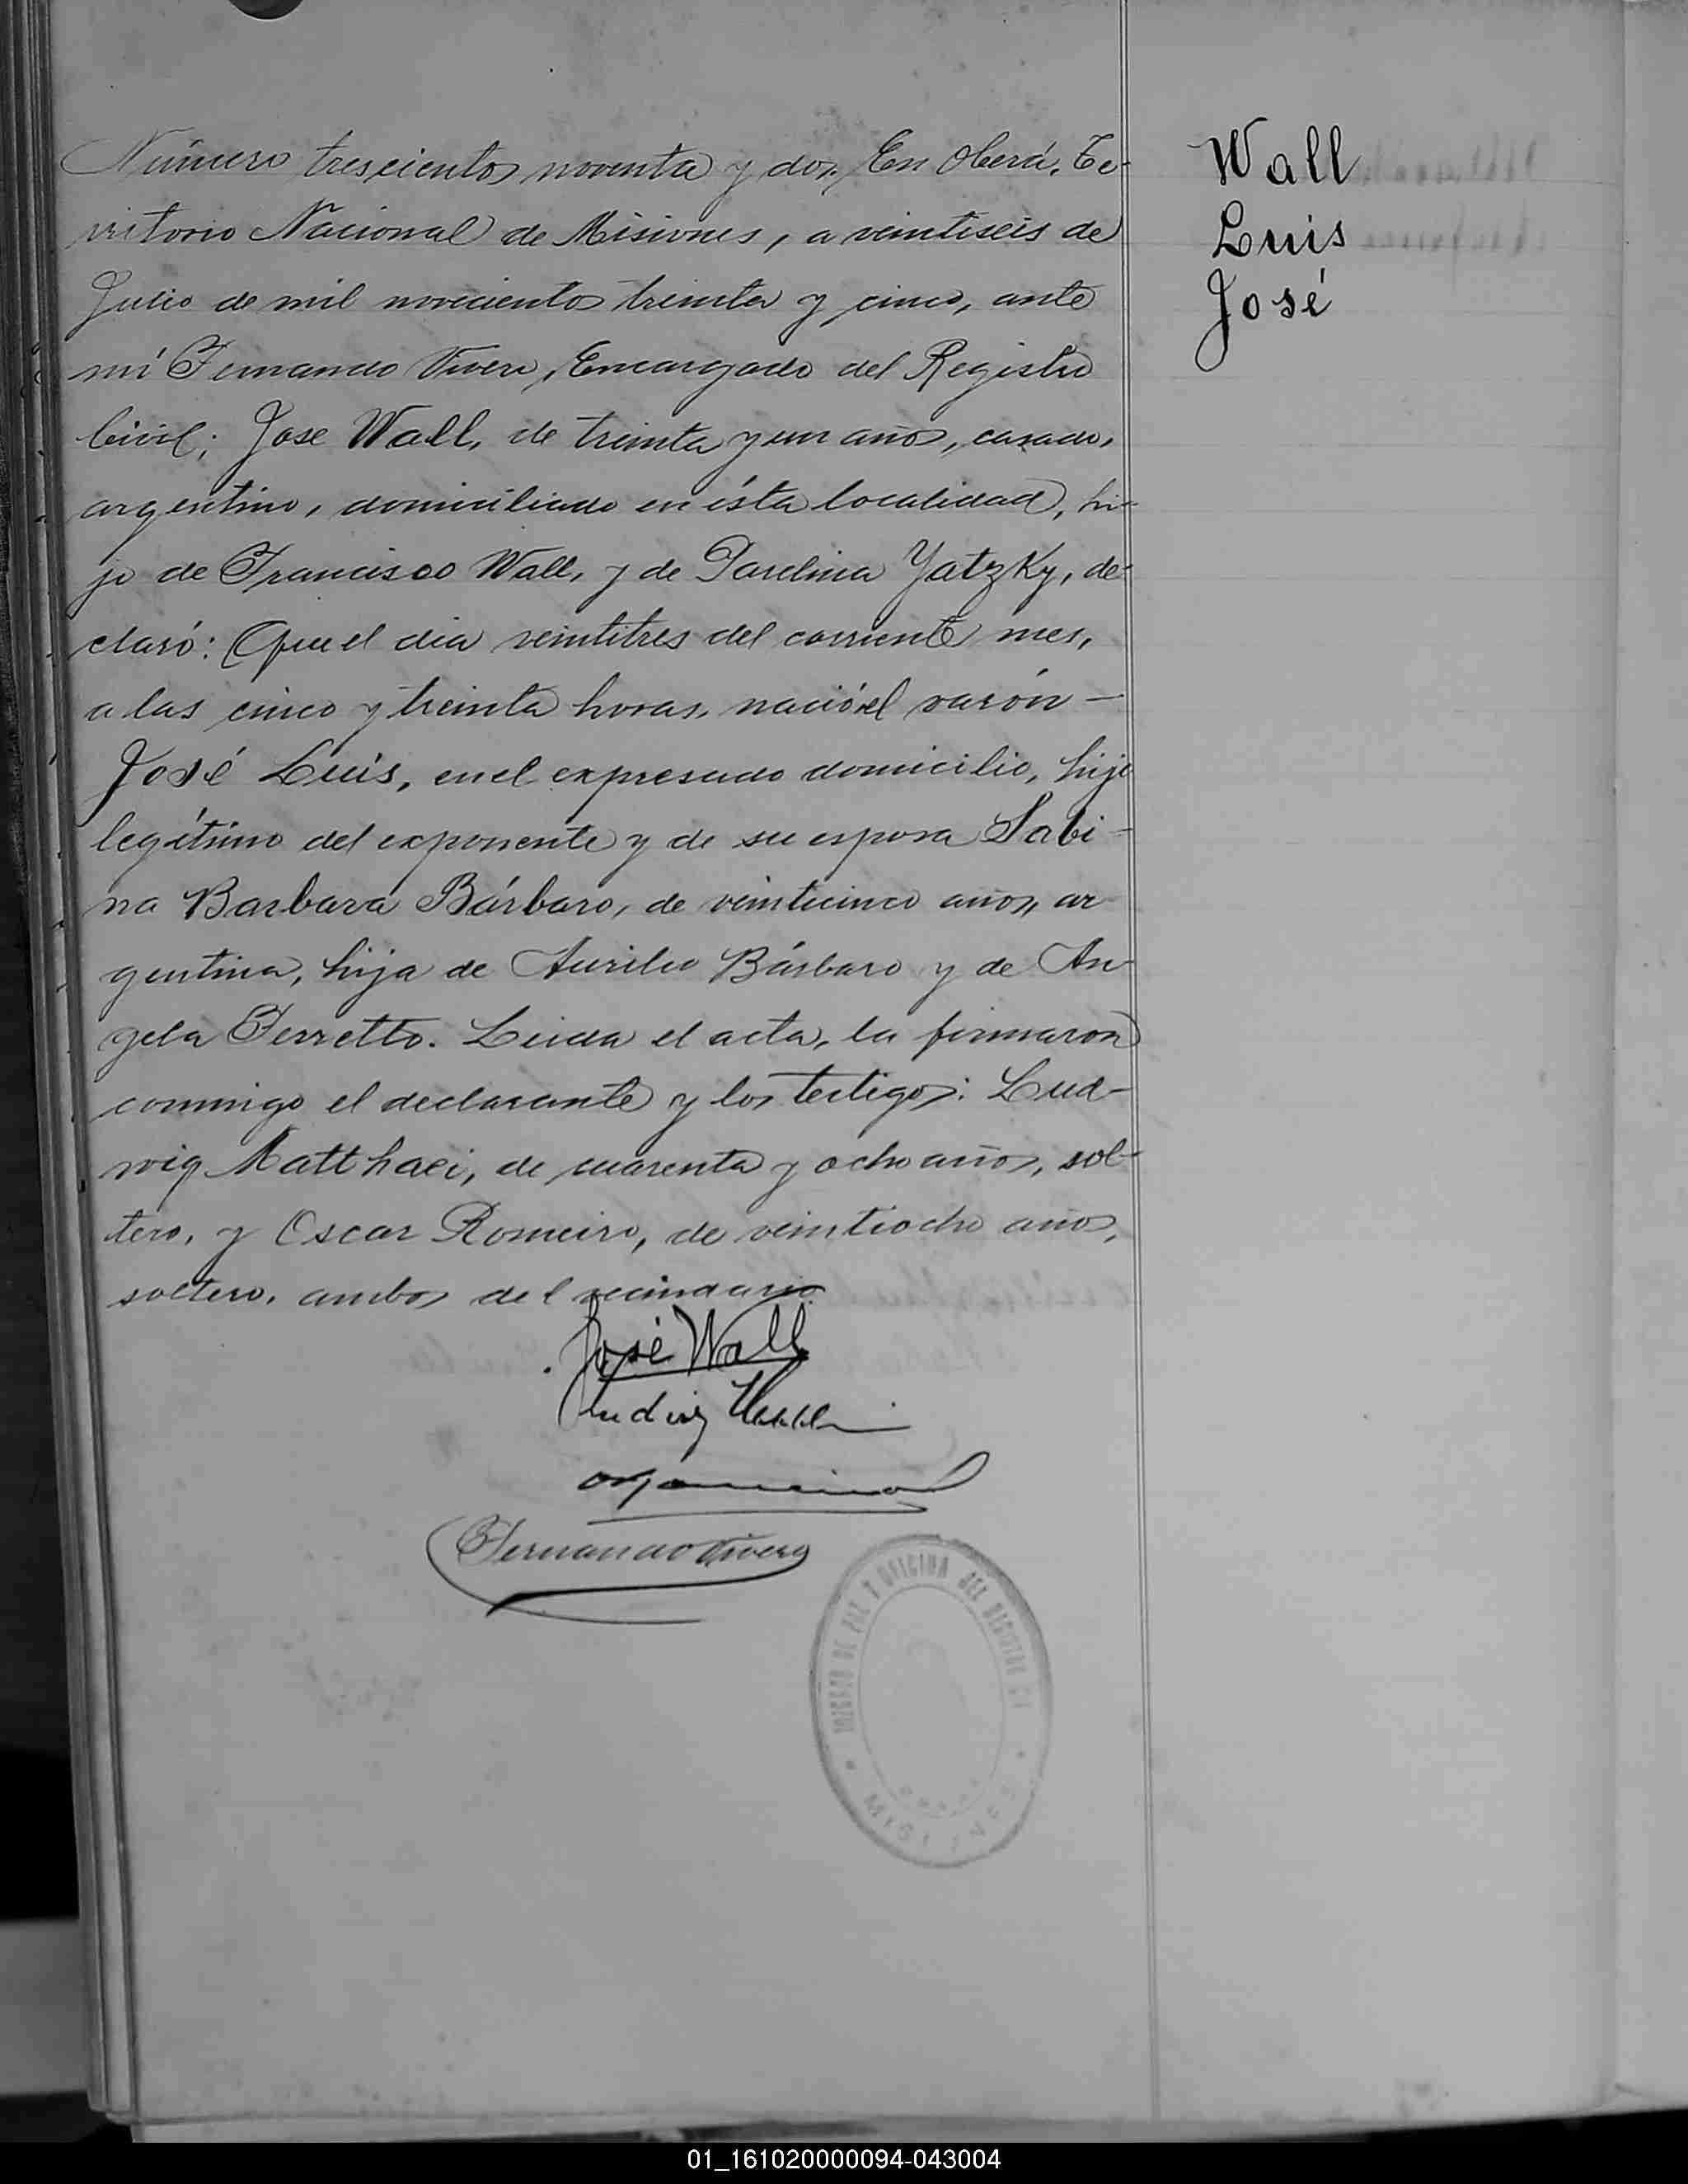 Número trescientos noventa y dos. En Oberá, Te-
rritorio Nacional de Misiones, a veintiseis de
Julio de mil novecientos treinta y cinco, ante
mí Fernando Vivero, Encargado del Registro
Civil; Jose Wall, de treinta y un años, casado,
argentino, domiciliado en ésta localidad, hi-
jo de Francisco Wall, y de Yatzky, de-
claró: Que el dia veintitres del corriente mes,
a las cinco y treinta horas, nació el varón —
José Luis, en el expresado domicilio, hijo
legítimo del exponente y de su esposa Sabi-
na Barbara Bárbaro, de veinticinco años, ar-
gentina, hija de Aurelio Bárbaro y de An-
gela Ferretto. Leida el acta, la firmaron
conmigo el declarante y los testigos: Lud-
wig Matthaei, de cuarenta y ocho años, sol-
tero, y Oscar Romeiro, de veintiocho años,
soltero, ambos del vecindario.
José Wall
Ludwig
Fernando Vivero
JUZGADO DE PAZ Y OFICINA DEL REGISTRO CI
MISIONES
Wall
Luis
José
01_161020000094-043004